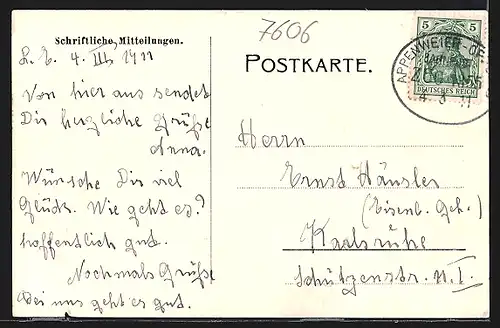 7606
Schriftliche Mitteilungen.
L. E. 4. III. 1911
Von hier aus sendet
Dir herzliche Grüße
Anna.
Wünsche Dir viel
Glück. Wie geht es?
hoffentlich gut.
Nochmals Grüße
Bei uns geht es gut.
POSTKARTE.
5 5
DEUTSCHES REICH
APPENWEIER-OF
4 3 11
Herrn
Ernst Häusler
(Eisenb. Geh.)
Karlsruhe
Schützenstr.